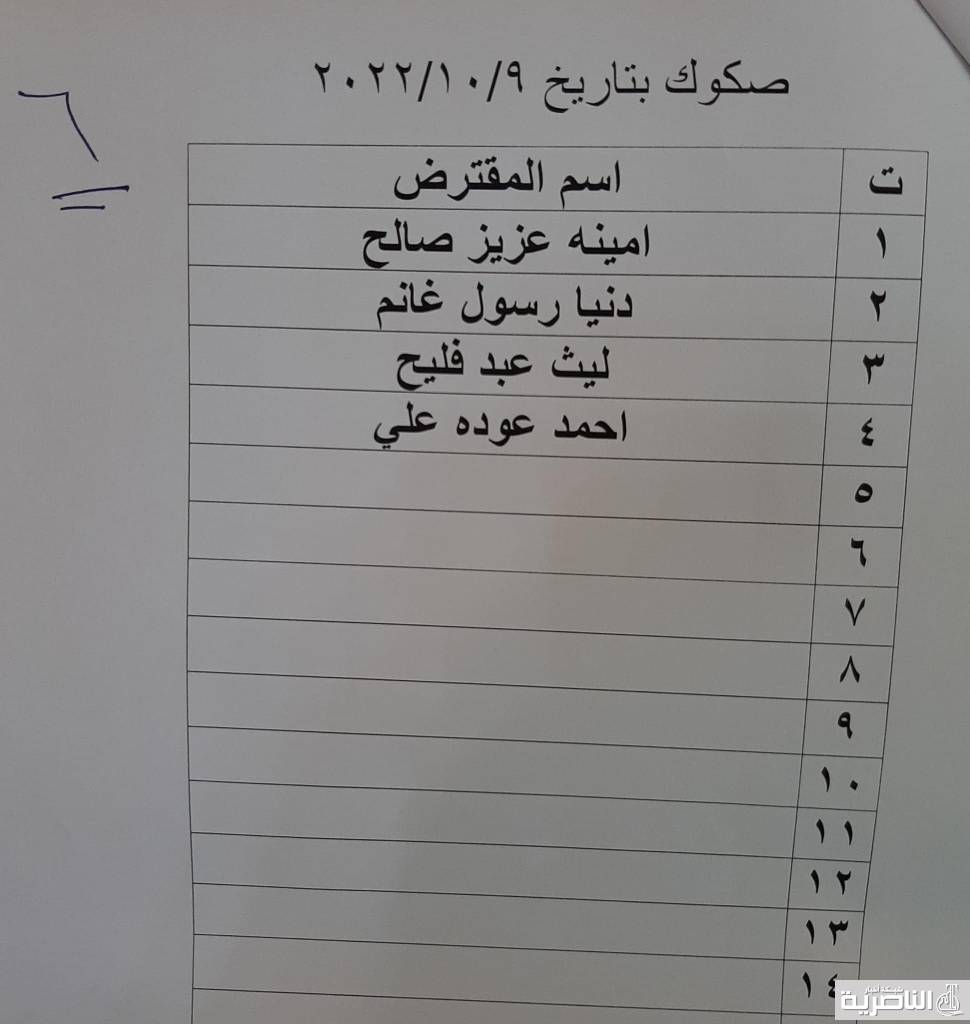 صكوك بتاريخ ٢٠٢٢/١٠/٩
٦
ت اسم المقترض
١ امينه عزيز صالح
٢ دنيا رسول غانم
٣ ليث عبد فليح
٤ احمد عوده علي
٥
٦
٧
٨
٩
١٠
١١
١٢
١٣
١٤
شبكة أخبار
الناصرية